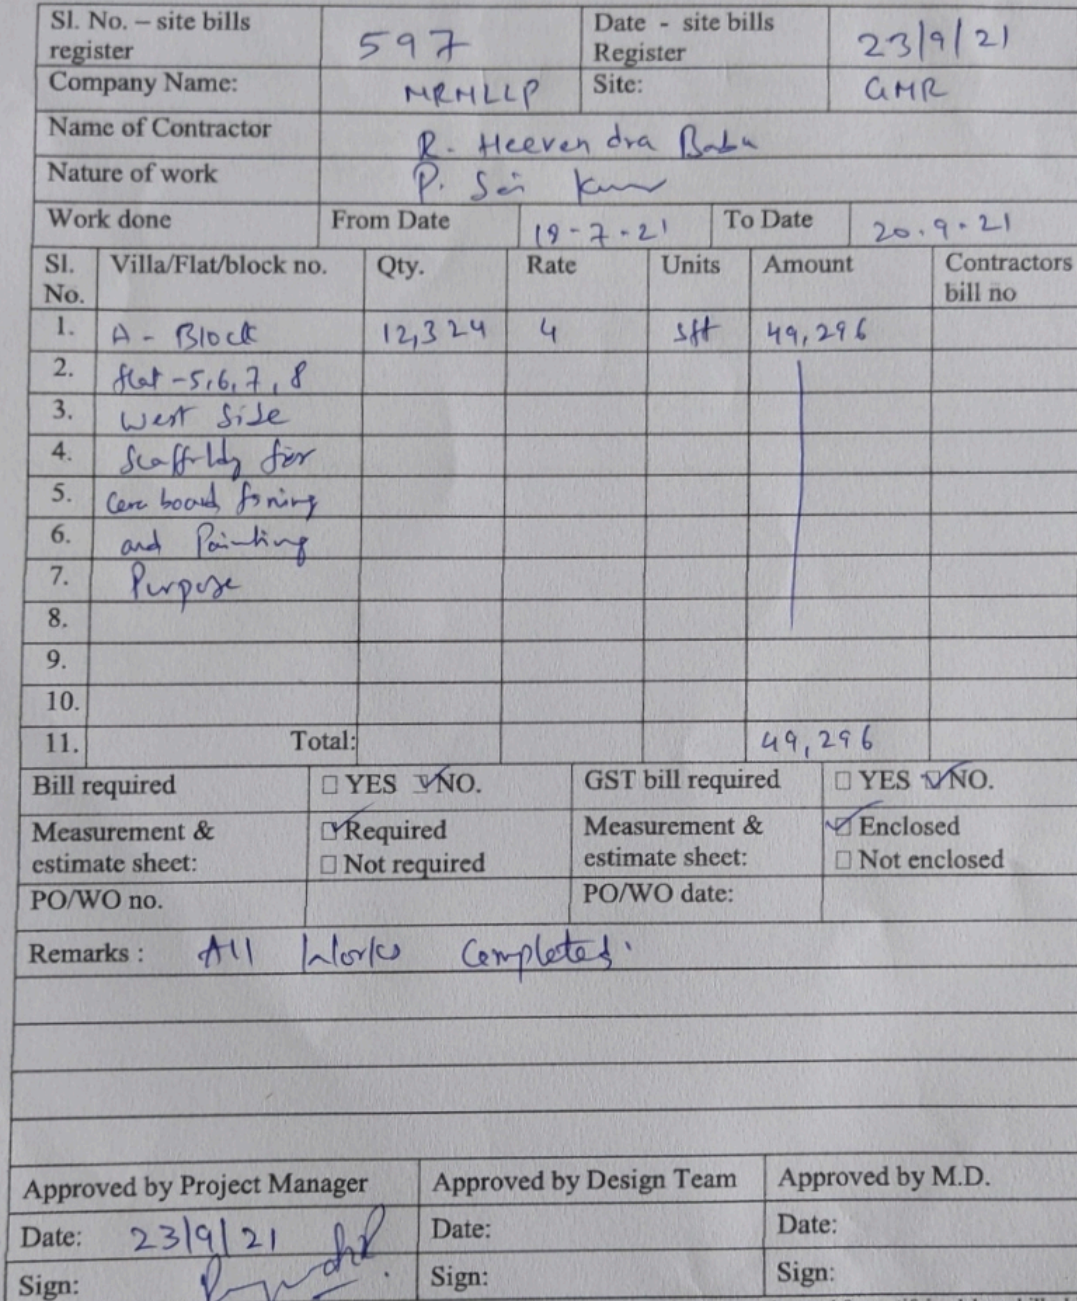 Sl. No. – site bills register 597 Date - site bills Register 23/9/21
Company Name: MRMLLP Site: GMR
Name of Contractor R. Heeven dra Babu
Nature of work P. Sai
Work done From Date 19-7-21 To Date 20.9.21
Sl. No. Villa/Flat/block no. Qty. Rate Units Amount Contractors bill no
1. A - Block 12,324 4 sft 49,296
2. flat -5,6,7,8
3. West Side
4. for
5. board
6. and Painting
7. Purpose
8.
9.
10.
11. Total: 49,296
Bill required □ YES ☑ NO. GST bill required □ YES ☑ NO.
Measurement & estimate sheet: ☑ Required □ Not required Measurement & estimate sheet: ☑ Enclosed □ Not enclosed
PO/WO no. PO/WO date:
Remarks : All Works Completed.
Approved by Project Manager Approved by Design Team Approved by M.D.
Date: 23/9/21 Date: Date:
Sign: Sign: Sign: